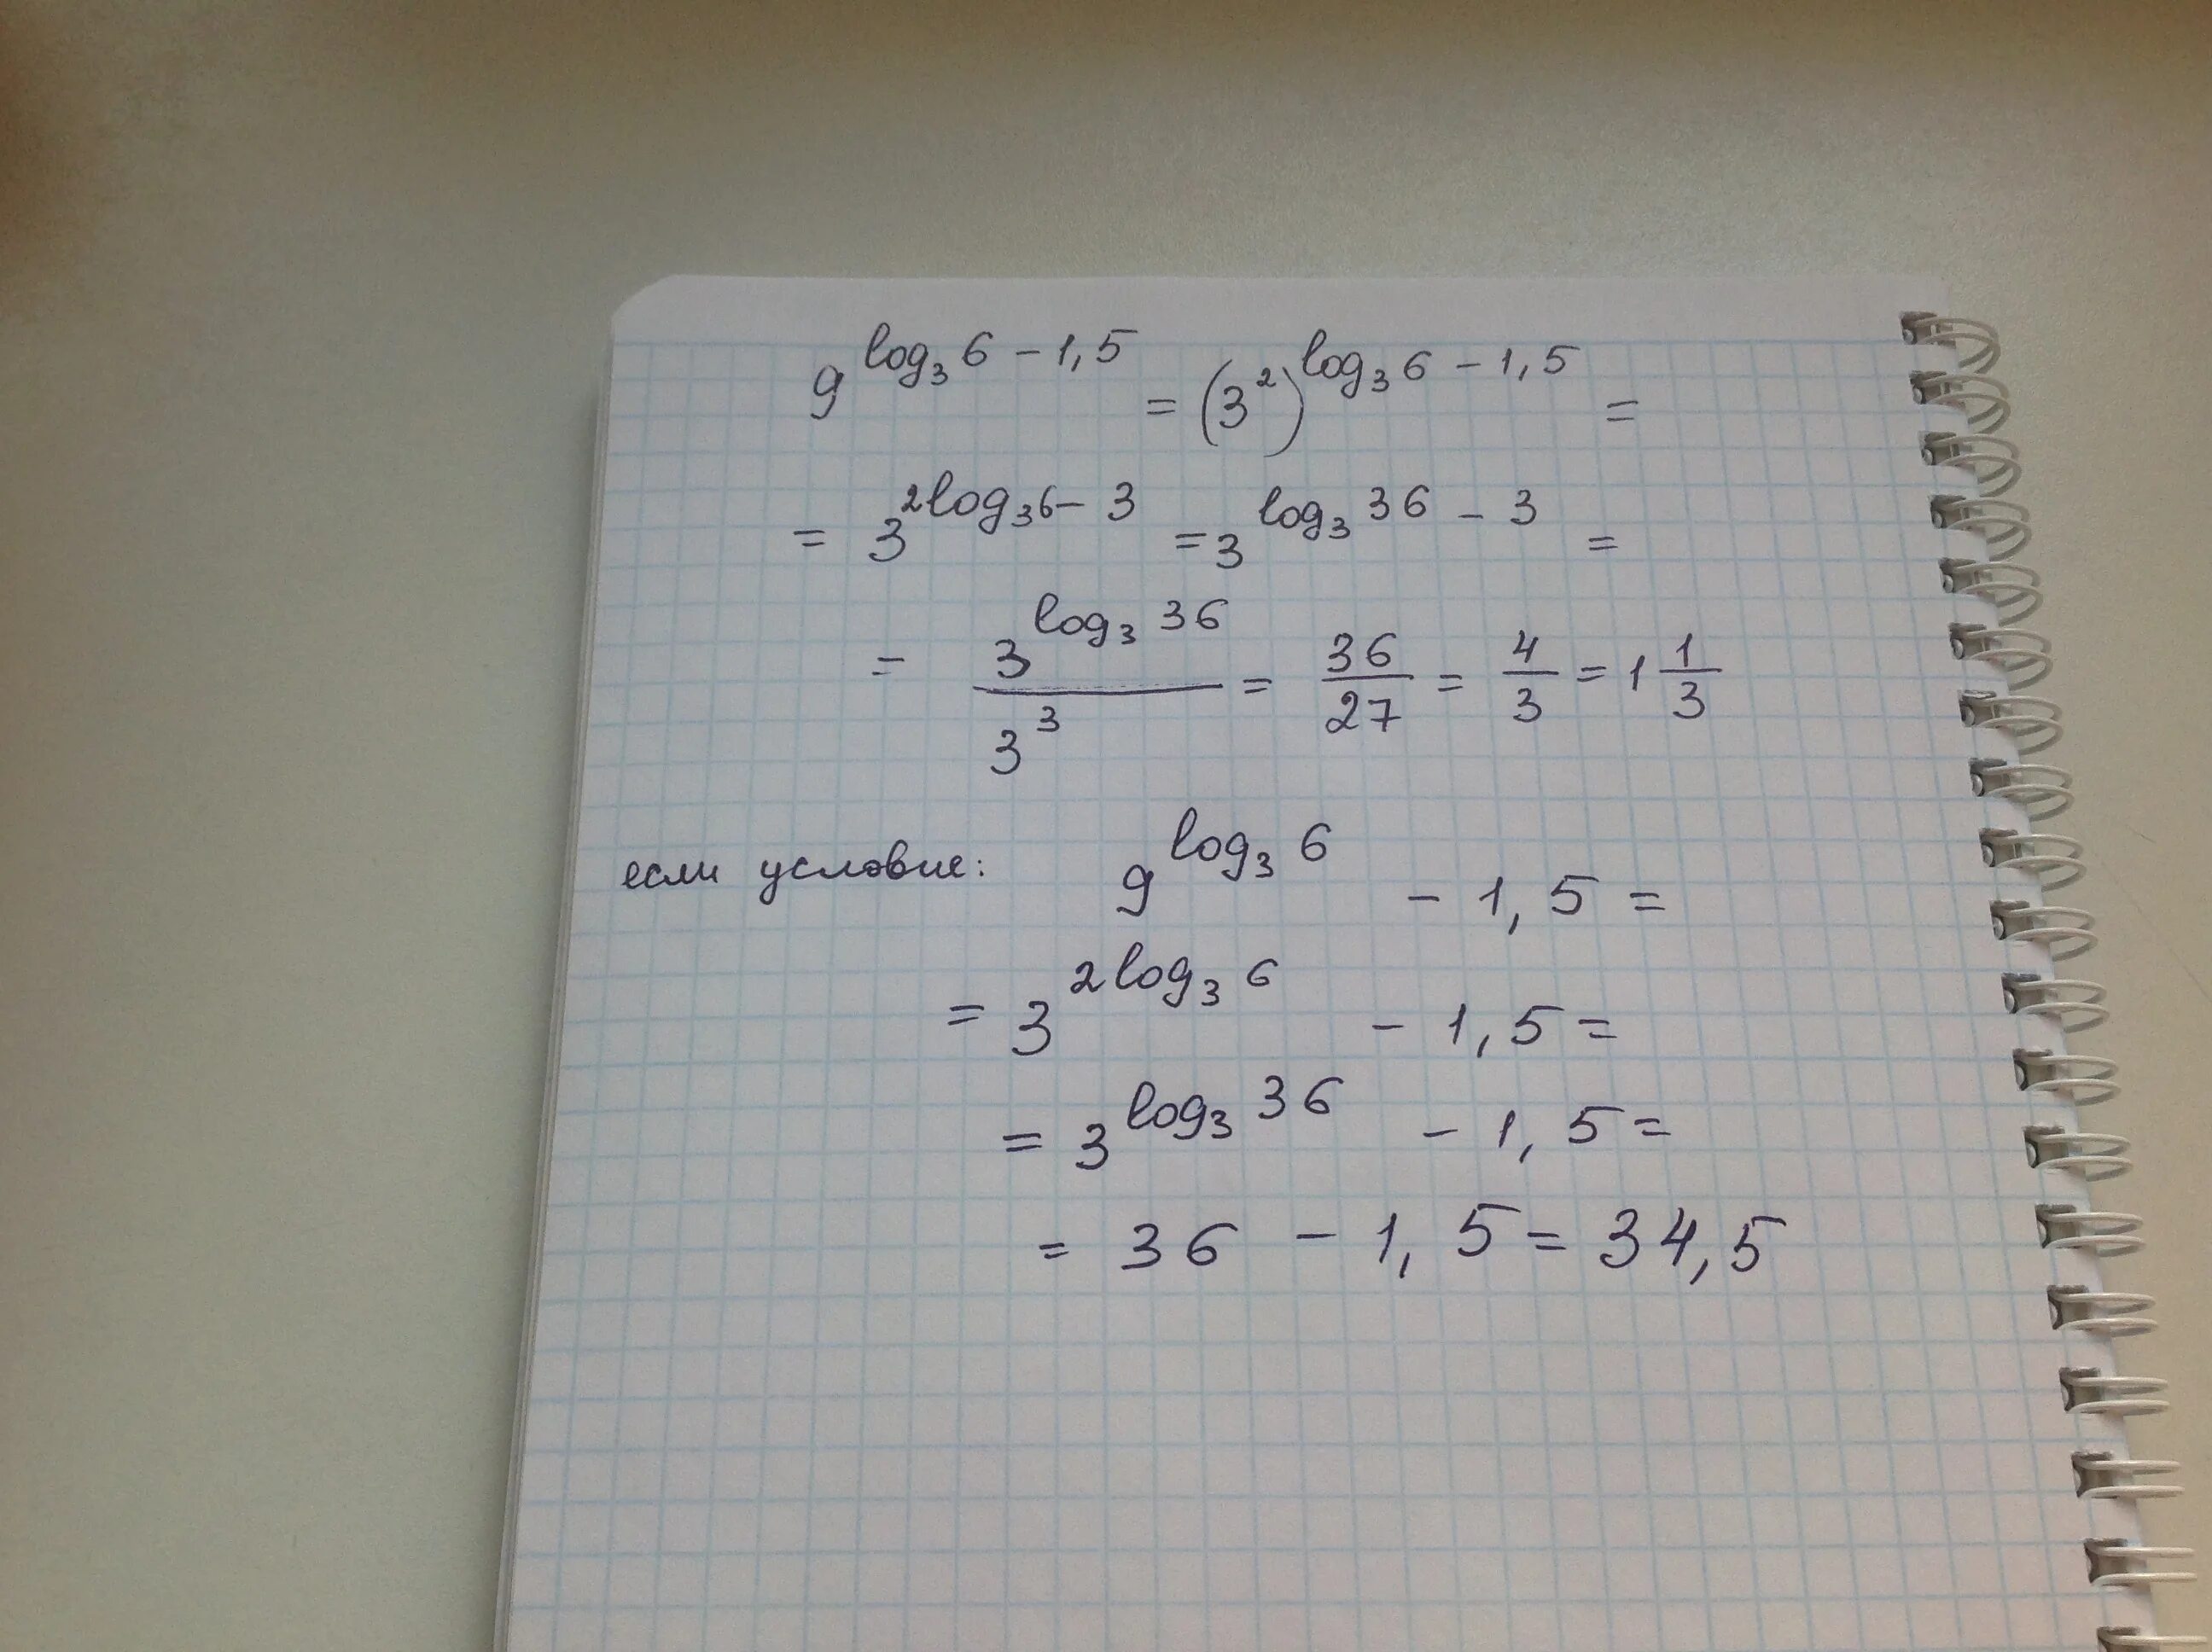 9^{log_3 6 - 1,5} = (3^2)^{log_3 6 - 1,5} =
= 3^{2log_3 6 - 3} = 3^{log_3 36 - 3} =
= \frac{3^{log_3 36}}{3^3} = \frac{36}{27} = \frac{4}{3} = 1\frac{1}{3}
если условие: 9^{log_3 6} - 1,5 =
= 3^{2log_3 6} - 1,5 =
= 3^{log_3 36} - 1,5 =
= 36 - 1,5 = 34,5